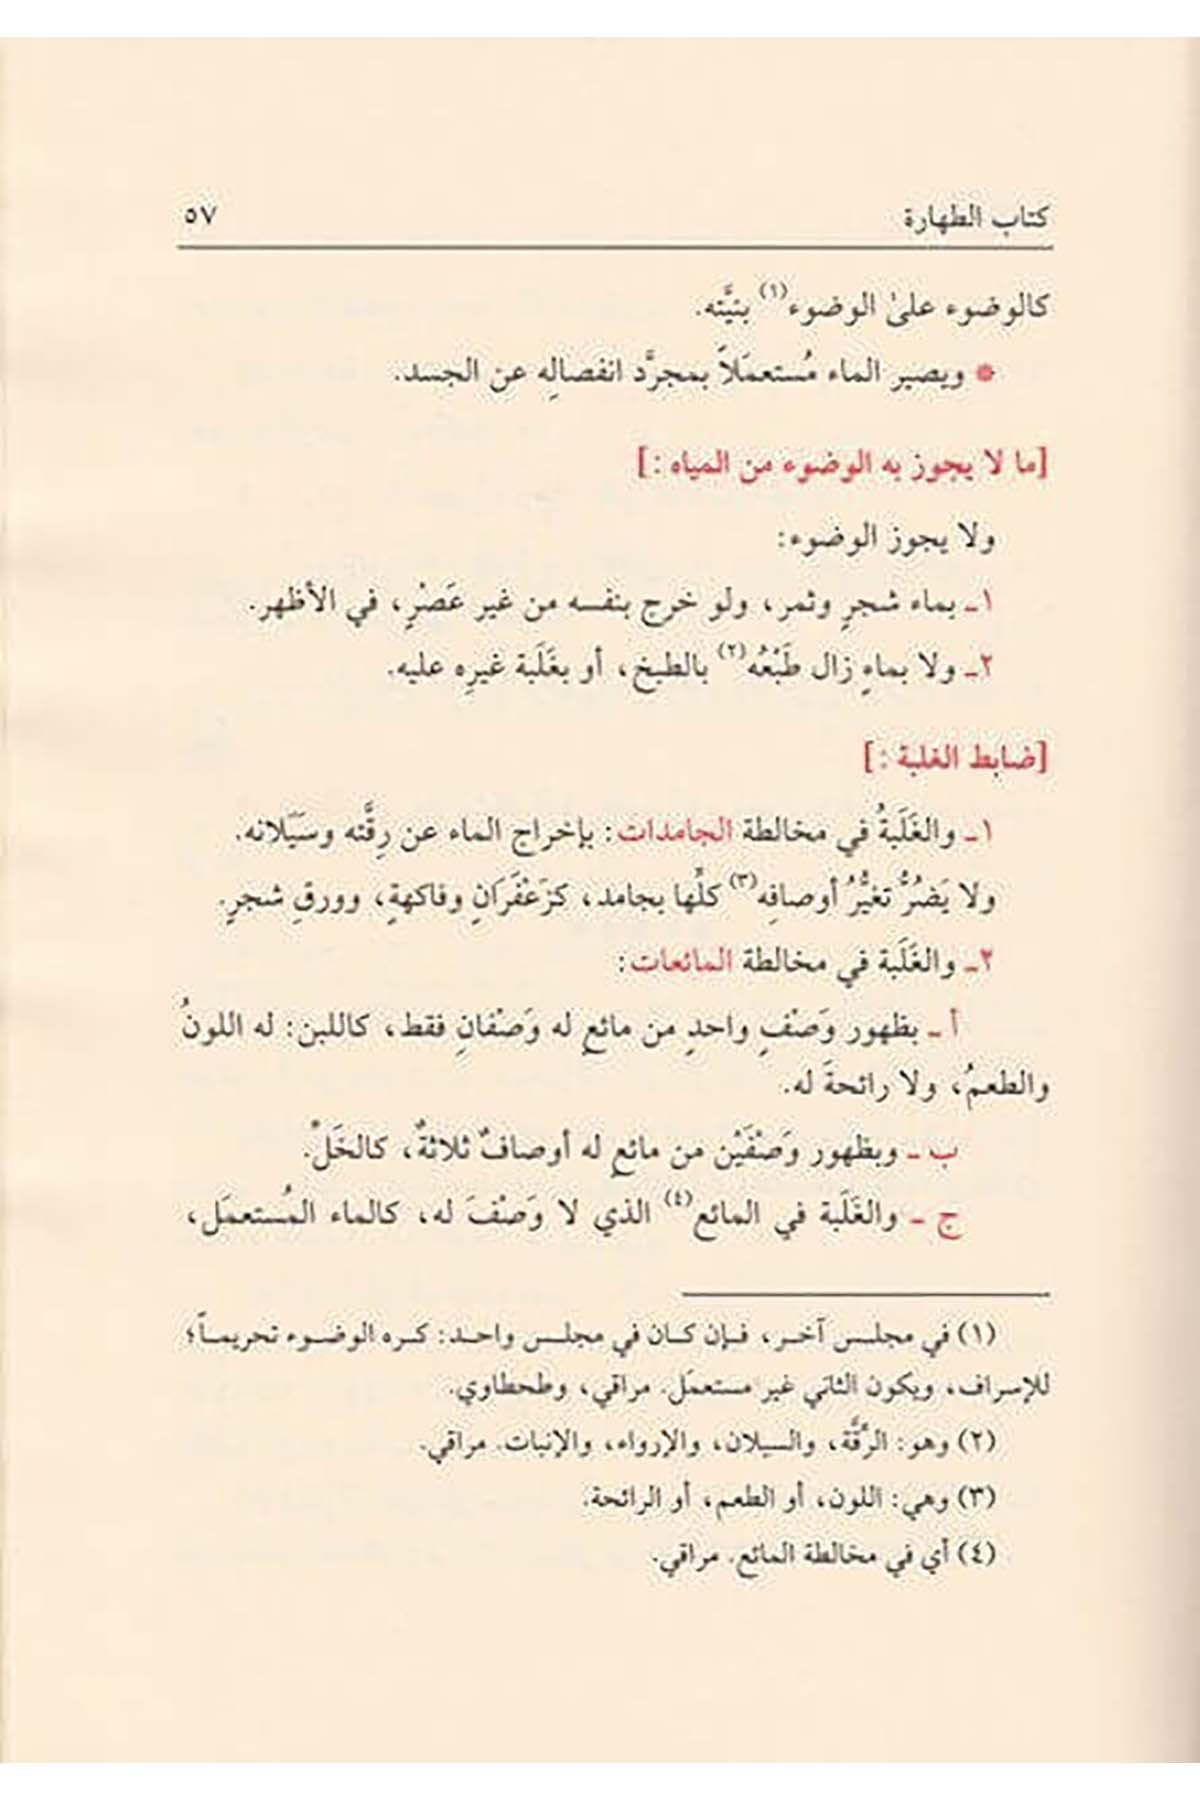 كتاب الطهارة ٥٧
كالوضوء علىٰ الوضوء(١) بنيَّته.
* ويصير الماء مُستعمَلاً بمجرَّد انفصالِه عن الجسد.
[ما لا يجوز به الوضوء من المياه :]
ولا يجوز الوضوء:
١ـ بماء شجرٍ وثمر، ولو خرج بنفسه من غير عَصْرٍ، في الأظهر.
٢ـ ولا بماءٍ زال طَبْعُه(٢) بالطبخ، أو بغَلَبة غيرِه عليه.
[ضابط الغلبة :]
١ـ والغَلَبةُ في مخالطة الجامدات: بإخراج الماء عن رِقَّته وسَيَلانه.
ولا يَضُرُّ تغيُّرُ أوصافِه(٣) كلِّها بجامد، كزَعْفَرَانٍ وفاكهةٍ، وورقِ شجرٍ.
٢ـ والغَلَبة في مخالطة المائعات:
أ ـ بظهور وَصْفٍ واحدٍ من مائعٍ له وَصْفانِ فقط، كاللبن: له اللونُ
والطعمُ، ولا رائحةَ له.
ب ـ وبظهور وَصْفَيْن من مائعٍ له أوصافٌ ثلاثةٌ، كالخَلِّ.
ج ـ والغَلَبة في المائع(٤) الذي لا وَصْفَ له، كالماء المُستعمَل،
(١) في مجلس آخر، فإن كان في مجلس واحد: كره الوضوء تحريماً؛
للإسراف، ويكون الثاني غير مستعمَل. مراقي، وطحطاوي.
(٢) وهو: الرِّقَّة، والسيلان، والإرواء، والإنبات. مراقي.
(٣) وهي: اللون، أو الطعم، أو الرائحة.
(٤) أي في مخالطة المائع. مراقي.